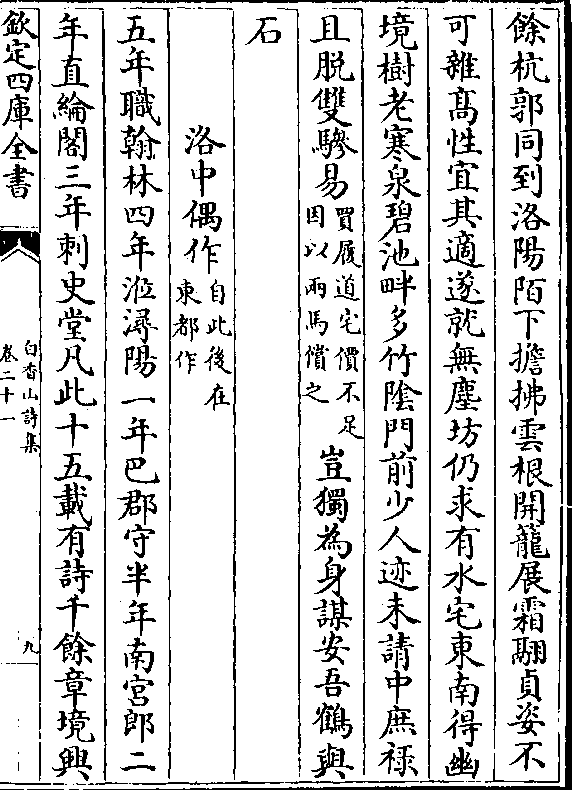 餘杭郭同到洛陽陌下擔拂雲根開籠展霜翮貞姿不
可雜髙性宜其適遂就無塵坊仍求有水宅東南得幽
境樹老寒泉碧池畔多竹隂門前少人迹未請中庶祿
且脱雙驂易買履道宅價不足因以兩馬償之豈獨為身謀安吾鶴與
石
洛中偶作自此後在東都作
五年職翰林四年涖潯陽一年巴郡守半年南宮郎二
年直綸閣三年刺史堂凡此十五載有詩千餘章境興
欽定四庫全書
白香山詩集
卷二十一
九